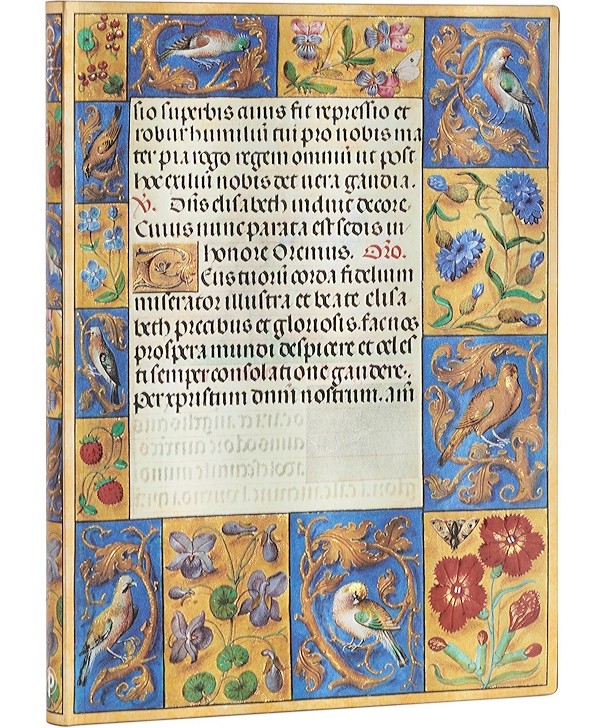 sio superbis cuius fit repressio et
robur humiliū tui pro nobis ma
ter pia rogo regem omniū ut post
hoc exiliū nobis det uera gaudia.
V. Dn̄s elisabeth induit decore.
Cuius nunc parata est sedis in
honore Oremus. Or̄o.
Deus tuorū corda fidelium
miserator illustra et beate elisa
beth precibus et gloriosis. fac nos
prospera mundi despicere et celes
ti semper consolatione gaudere.
Per xpristum dnm̄ nostrum. am̄